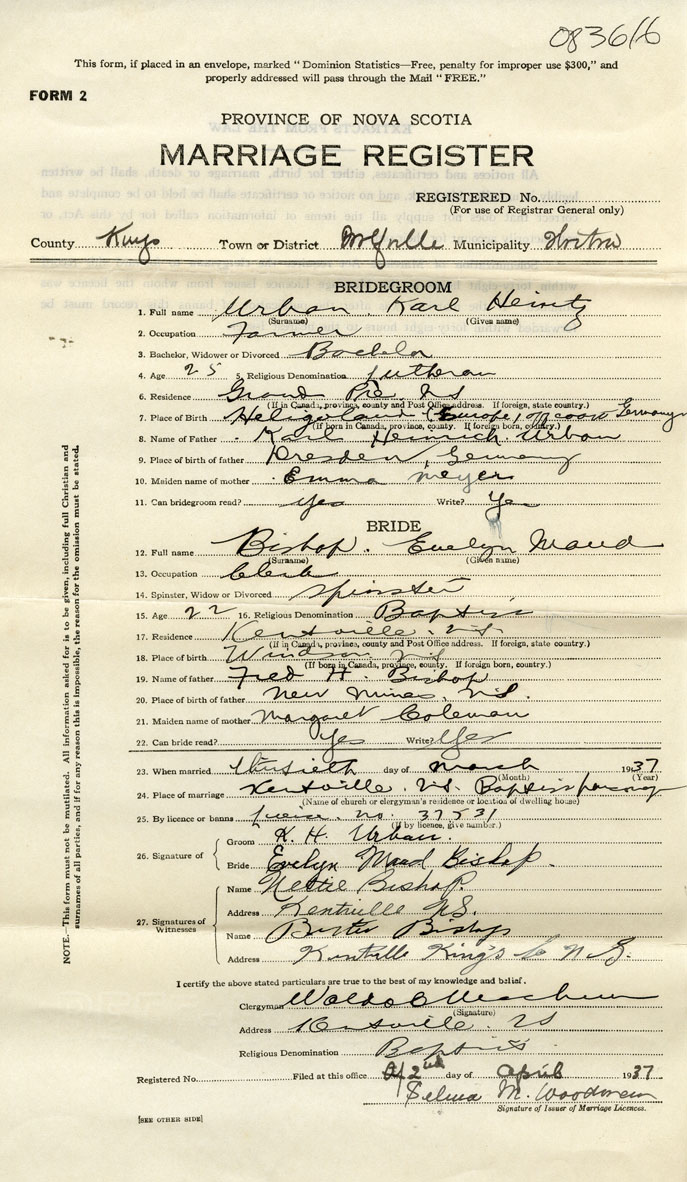 083616
This form, if placed in an envelope, marked "Dominion Statistics—Free, penalty for improper use $300," and
properly addressed will pass through the Mail "FREE."
FORM 2
PROVINCE OF NOVA SCOTIA
MARRIAGE REGISTER
REGISTERED No.
(For use of Registrar General only)
County Kings Town or District Wolfville Municipality Horton
BRIDEGROOM
1. Full name Urban Karl Heintz
(Surname) (Given name)
2. Occupation Farmer
3. Bachelor, Widower or Divorced Bachelor
4. Age 25 5. Religious Denomination Lutheran
6. Residence Grand Pré, N S
(If in Canada, province, county and Post Office address. If foreign, state country.)
7. Place of Birth Heligoland (Europe, off coast Germany
(If born in Canada, province, county. If foreign born, country.)
8. Name of Father Karl Heinrich Urban
9. Place of birth of father Dresden, Germany
10. Maiden name of mother Emma Meyers
11. Can bridegroom read? Yes Write? Yes
BRIDE
12. Full name Bishop. Evelyn Maud
(Surname) (Given name)
13. Occupation Clerk
14. Spinster, Widow or Divorced Spinster
15. Age 22 16. Religious Denomination Baptist
17. Residence Kentville, N.S.
(If in Canada, province, county and Post Office address. If foreign, state country.)
18. Place of birth Windsor N S
(If born in Canada, province, county. If foreign born, country.)
19. Name of father Fred H. Bishop
20. Place of birth of father New Minas, N.S.
21. Maiden name of mother Margaret Coleman
22. Can bride read? Yes Write? Yes
23. When married thirtieth day of March 1937
(Month) (Year)
24. Place of marriage Kentville, N.S. Baptist parsonage
(Name of church or clergyman's residence or location of dwelling house)
25. By licence or banns licence no. 37531
(If by licence, give number.)
26. Signature of
Groom K. H. Urban.
Bride Evelyn Maud Bishop.
27. Signatures of
Witnesses
Name Nettie Bishop.
Address Kentville N.S.
Name Bishop
Address Kentville King's Co N.S.
I certify the above stated particulars are true to the best of my knowledge and belief.
Clergyman Waldo C Machum
(Signature)
Address Kentville. N S
Religious Denomination Baptist
Registered No. Filed at this office 2nd day of April 1937
Selina M. Woodman
Signature of Issuer of Marriage Licences.
[SEE OTHER SIDE]
NOTE.—This form must not be mutilated. All information asked for is to be given, including full Christian and
surnames of all parties, and if for any reason this is impossible, the reason for the omission must be stated.